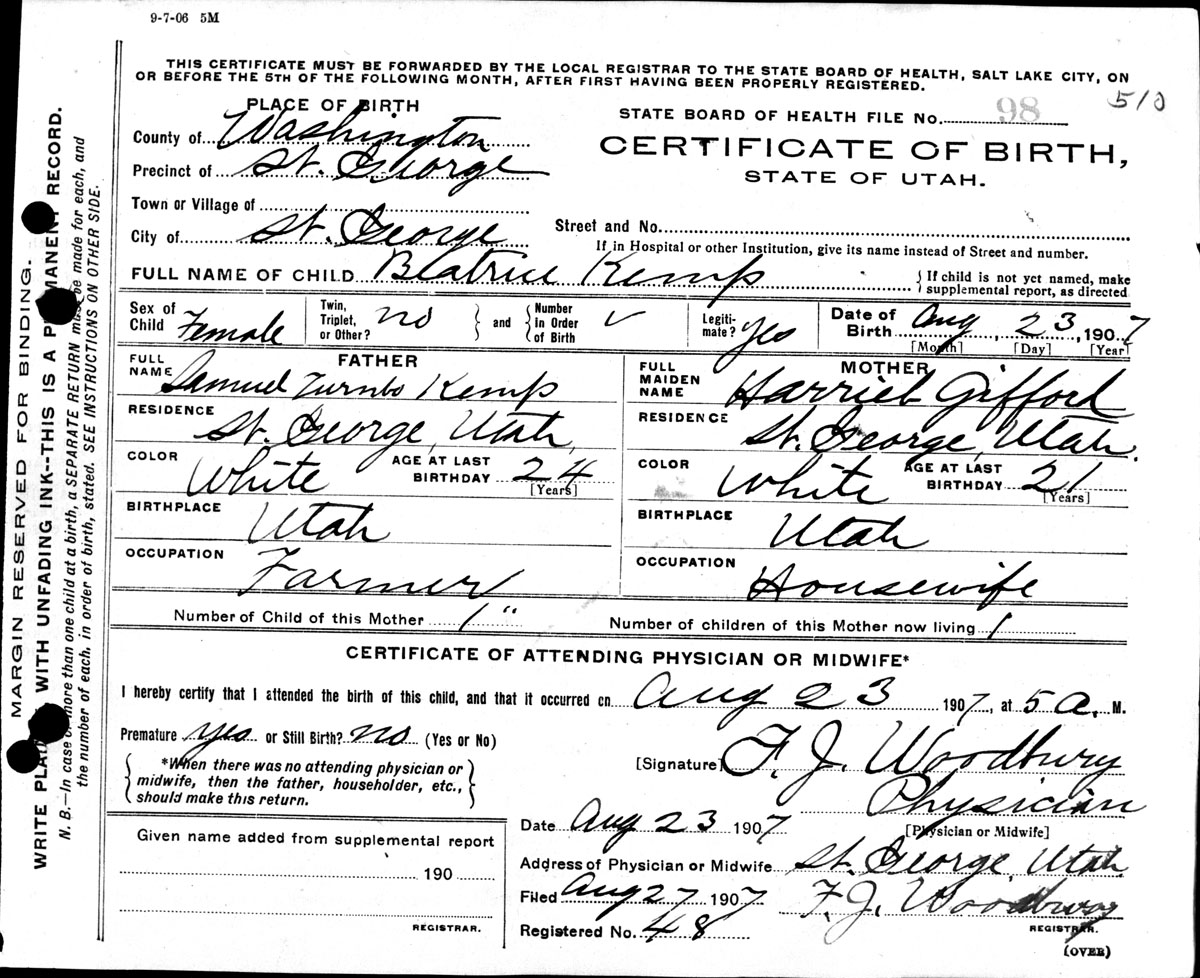 9-7-06 5M
THIS CERTIFICATE MUST BE FORWARDED BY THE LOCAL REGISTRAR TO THE STATE BOARD OF HEALTH, SALT LAKE CITY, ON
OR BEFORE THE 5TH OF THE FOLLOWING MONTH, AFTER FIRST HAVING BEEN PROPERLY REGISTERED.
510
PLACE OF BIRTH
STATE BOARD OF HEALTH FILE No. 98
County of Washington
CERTIFICATE OF BIRTH,
Precinct of St. George
STATE OF UTAH.
Town or Village of
Street and No.
City of St. George
If in Hospital or other Institution, give its name instead of Street and number.
FULL NAME OF CHILD Beatrice Kemp
{If child is not yet named, make
supplemental report, as directed
Sex of Child Female
Twin, Triplet, or Other? no
} and { Number in Order of Birth ✓
Legiti-mate? Yes
Date of Birth Aug 23, 1907
[Month] [Day] [Year]
FATHER
FULL NAME Samuel Turnbo Kemp
RESIDENCE St. George, Utah,
COLOR White AGE AT LAST BIRTHDAY 24
[Years]
BIRTHPLACE Utah
OCCUPATION Farmer
MOTHER
FULL MAIDEN NAME Harriet Gifford
RESIDENCE St. George, Utah.
COLOR White AGE AT LAST BIRTHDAY 21
[Years]
BIRTHPLACE Utah
OCCUPATION Housewife
Number of Child of this Mother 1"
Number of children of this Mother now living 1
CERTIFICATE OF ATTENDING PHYSICIAN OR MIDWIFE*
I hereby certify that I attended the birth of this child, and that it occurred on Aug 23 1907, at 5 a. M.
Premature yes or Still Birth? no (Yes or No)
*When there was no attending physician or
midwife, then the father, householder, etc.,
should make this return.
[Signature] F. J. Woodbury
Physician
[Physician or Midwife]
Date Aug 23 1907
Address of Physician or Midwife St. George, Utah
Filed Aug 27 1907 F. J. Woodbury
Registered No. 48
REGISTRAR.
(OVER)
Given name added from supplemental report
190
REGISTRAR.
MARGIN RESERVED FOR BINDING.
WRITE PLAINLY WITH UNFADING INK--THIS IS A PERMANENT RECORD.
N. B.—In case of more than one child at a birth, a SEPARATE RETURN must be made for each, and
the number of each, in order of birth, stated. SEE INSTRUCTIONS ON OTHER SIDE.